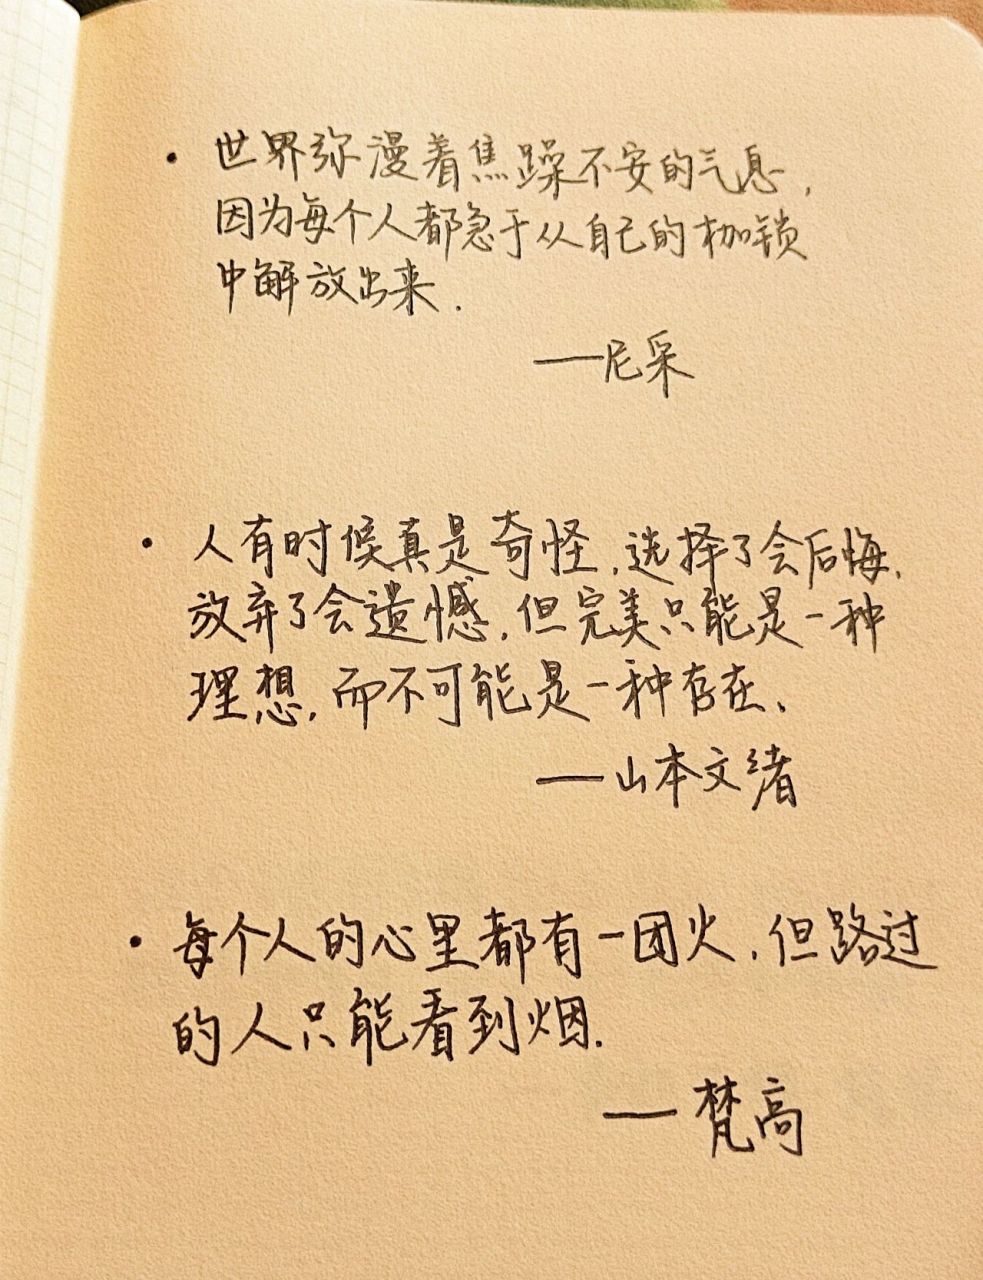 • 世界弥漫着焦躁不安的气息，
因为每个人都急于从自己的枷锁
中解放出来.
——尼采
• 人有时候真是奇怪,选择了会后悔,
放弃了会遗憾,但完美只能是一种
理想,而不可能是一种存在、
——山本文绪
• 每个人的心里都有一团火,但路过
的人只能看到烟.
——梵高